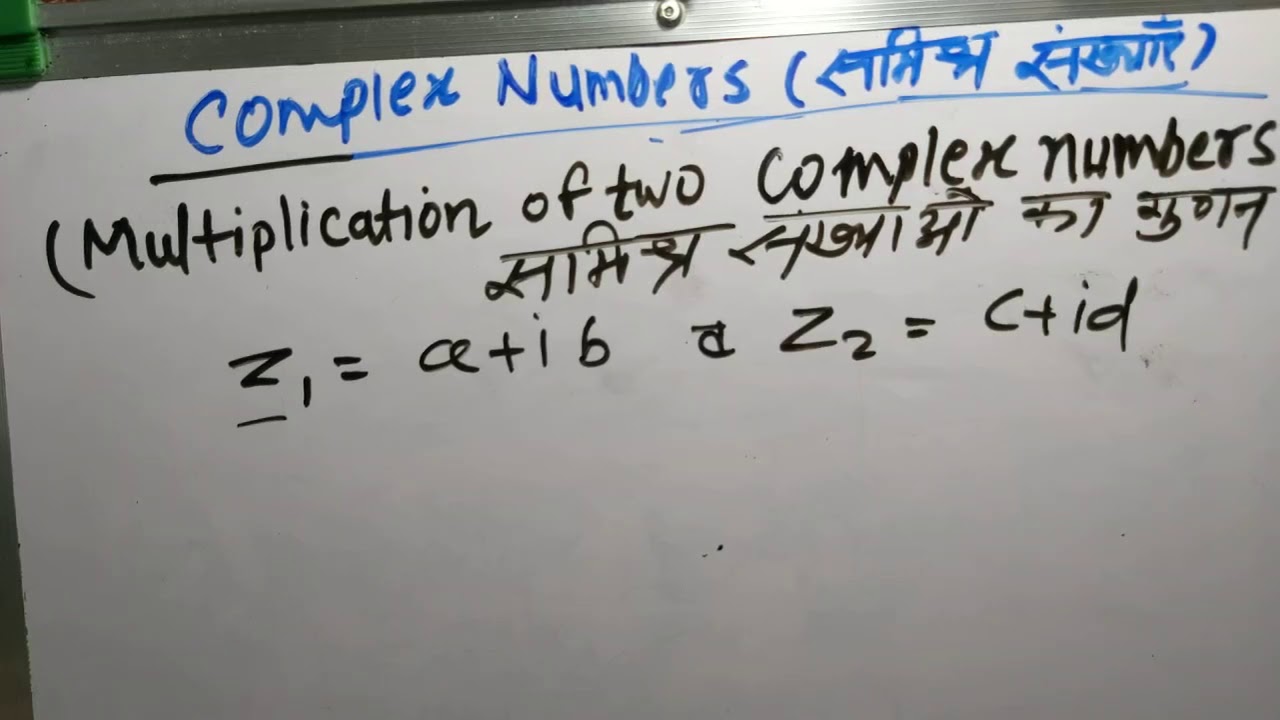 Complex Numbers (समिश्र संख्याएँ)
(Multiplication of two complex numbers
समिश्र संख्याओ का गुणन
Z₁ = a+ib व Z₂ = c+id